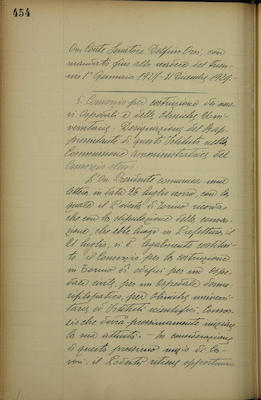 454
On. Conte Senatore Delfino Orsi, con
mandato fino alla scadenza del trien-
nio 1° Gennaio 1927 - 31 Dicembre 1929.
5. Consorzio per costruzione di nuo-
vi Ospedali e delle Cliniche Uni-
versitarie - Designazione del Rap-
presentante di questo Istituto nella
Commissione amministratrice del
Consorzio stesso.
L'On. Presidente comunica una
lettera in data 26 luglio scorso, con la
quale il Podestà di Torino ricorda
che con la stipulazione della conven-
zione, che ebbe luogo in Prefettura il
21 luglio, si è legalmente costitui-
to il Consorzio per la costruzione
in Torino di edifici per un Ospe-
dale civile, per un Ospedale dermo-
sifilopatico, per Cliniche universi-
tarie ed Istituti scientifici, Consor-
zio che dovrà prossimamente iniziare
la sua attività. - In considerazione
di questo prossimo inizio di
il Podestà ritiene opportuno